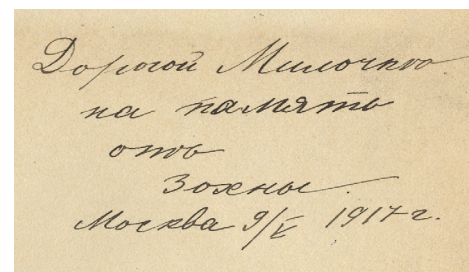 Дорогой Милочкѣ
на память
отъ
Зохны.
Москва 9/V 1917 г.